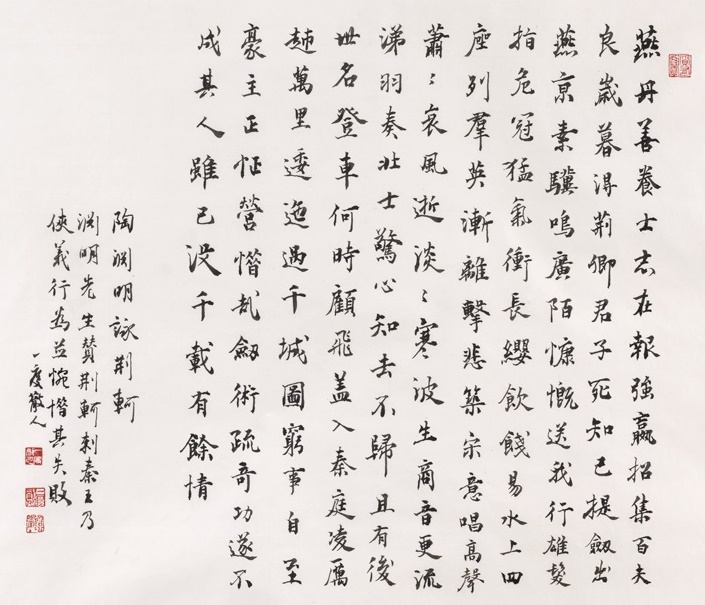 燕丹善養士志在報強嬴招集百夫
良歲暮淂荆卿君子死知己提劔出
燕京素驥鳴廣陌慷慨送我行雄髮
指危冠猛氣衝長纓飲餞易水上四
座列羣英漸離擊悲築宋意唱高聲
蕭〻哀風逝淡〻寒波生商音更流
涕羽奏壯士驚心知去不歸且有後
世名登車何時顧飛盖入秦庭凌厲
越萬里逶迤過千城圖窮事自至
豪主正怔營惜哉劔術疏奇功遂不
成其人雖已没千載有餘情
陶渊明詠荆軻
渊明先生贊荆軻刺秦王乃
俠義行為並惋惜其失敗